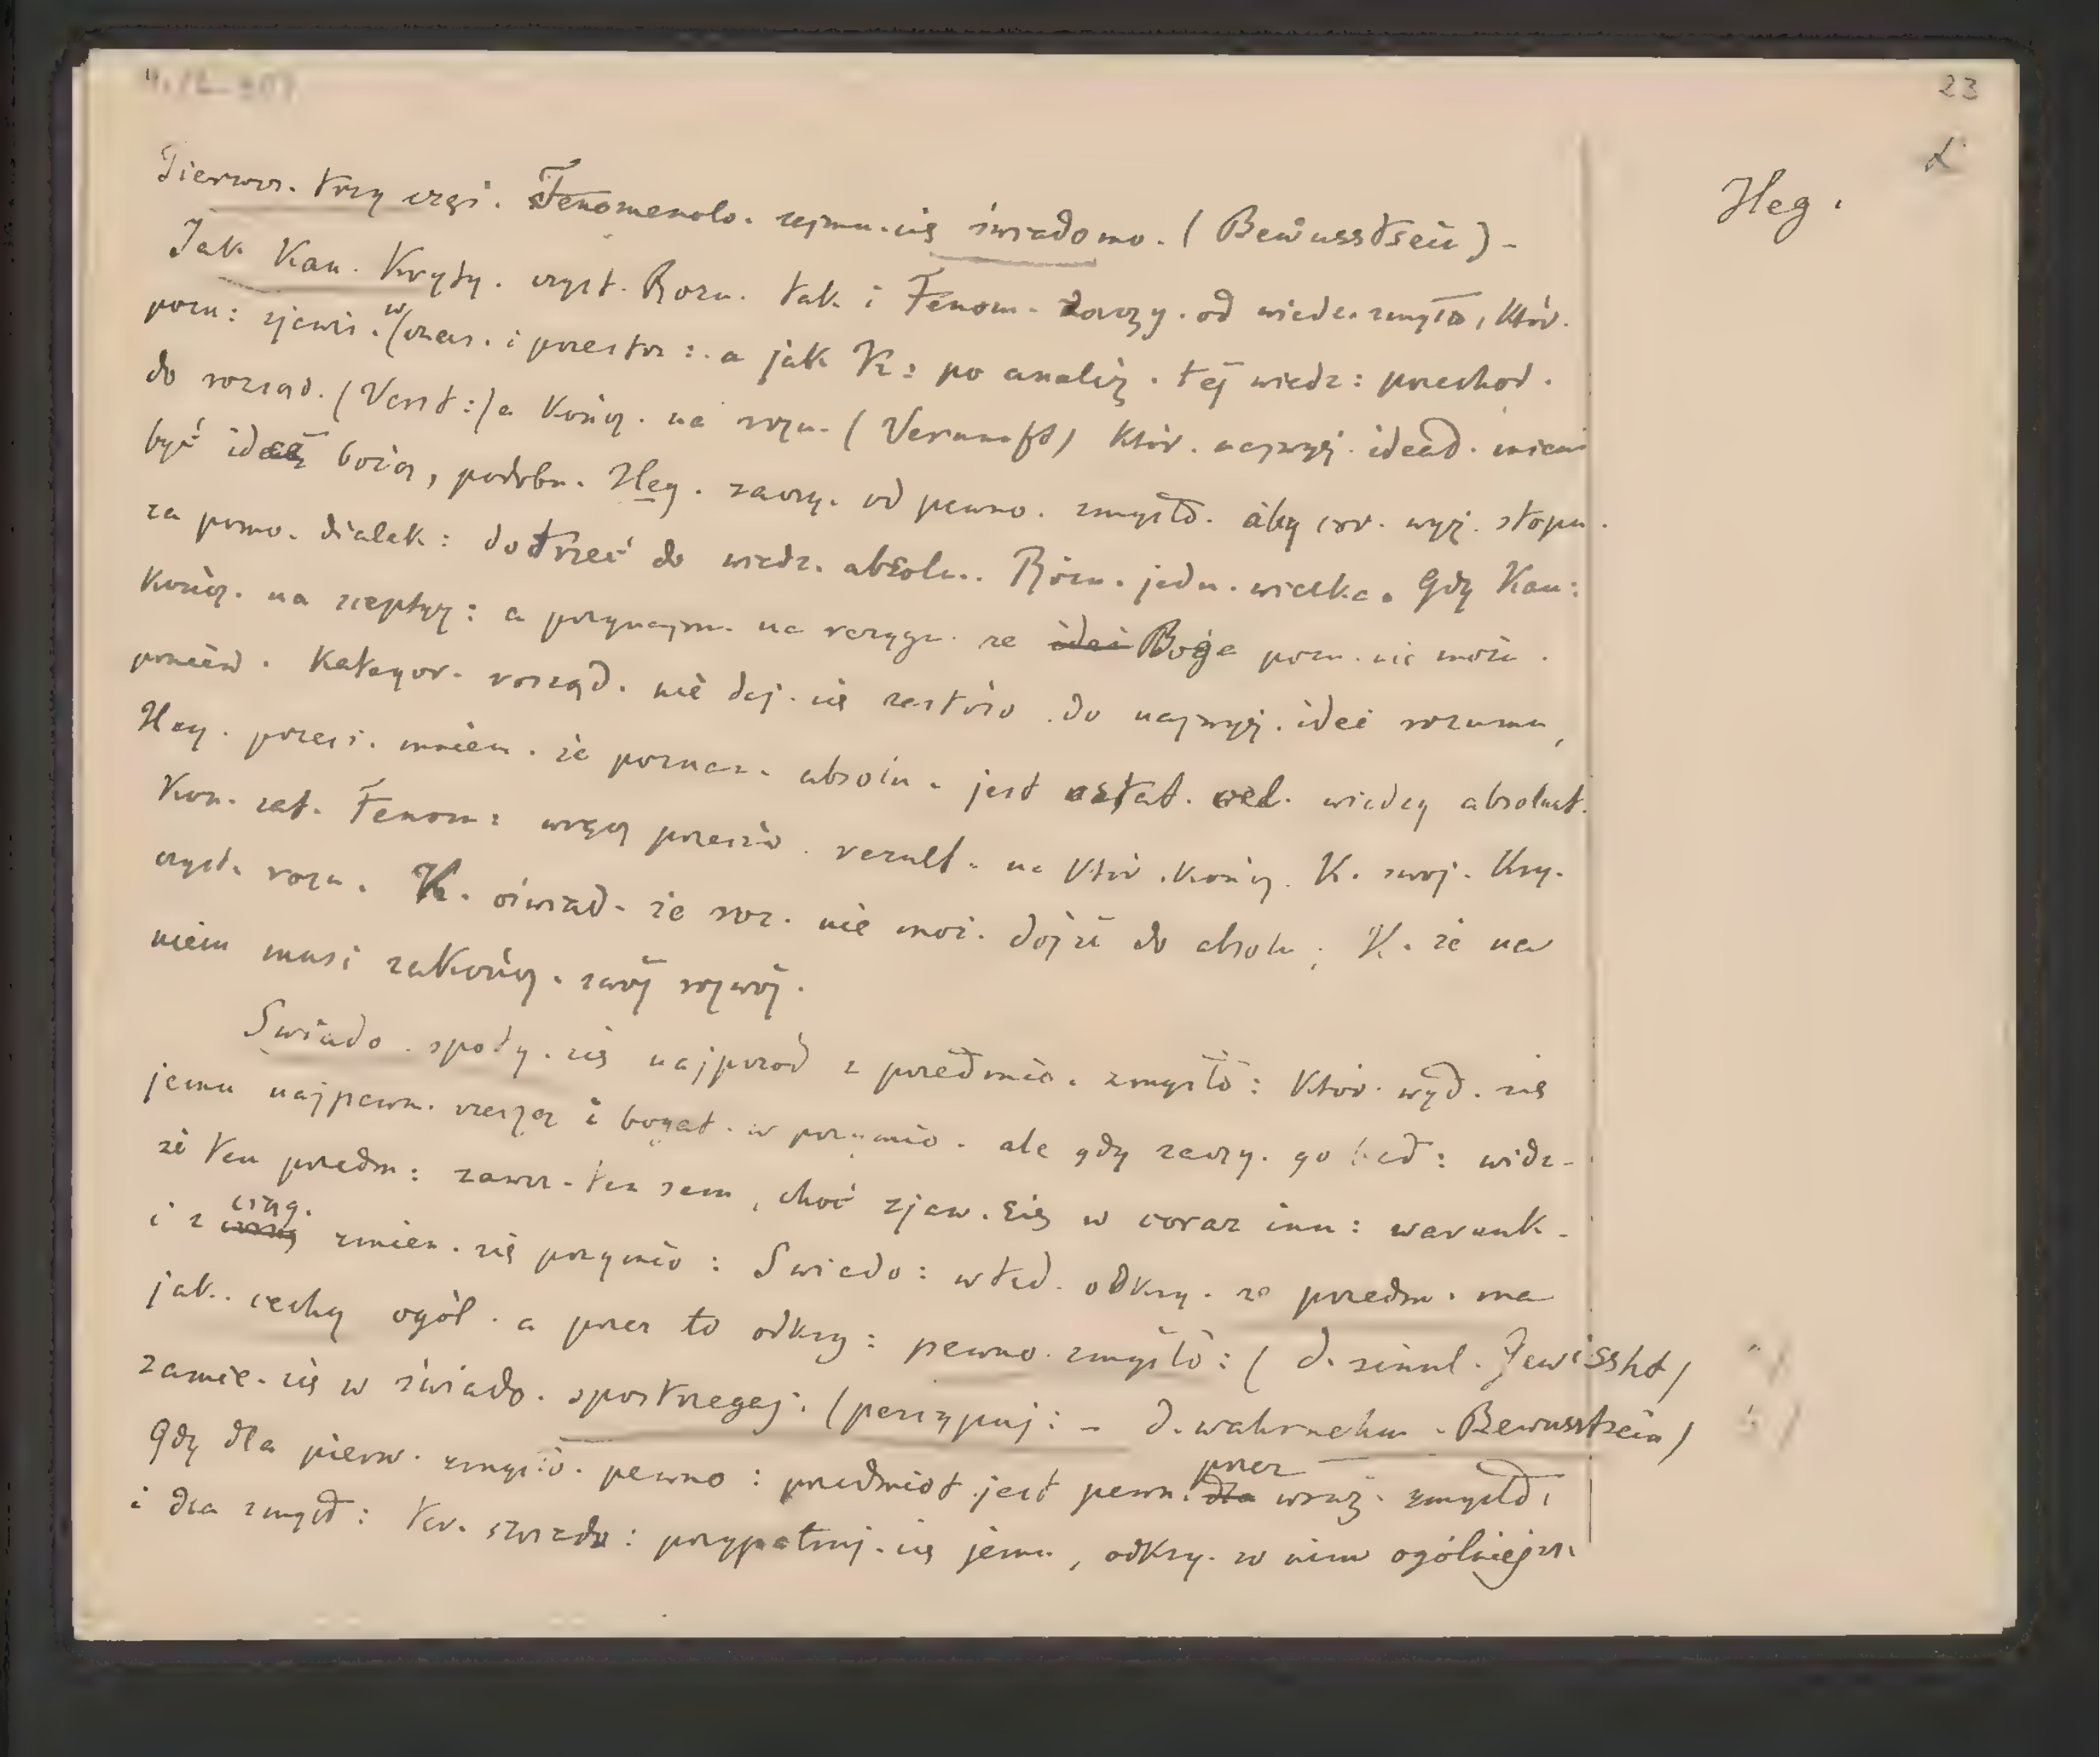 23
Heg.
Pierwsz. trzy częś. Fenomenolo. zajmu. się świadomo. (Bewusstsein) -
Jak Kan. Kryty. czyst. Rozu. tak i Fenom. zaczy. od wiedz. zmysło, któr.
pozn: zjawis. w czas. i przestrz: a jak K: po analiz. tej wiedz: przechod.
do rozsąd. (Verst:) a kończ. na rozu. (Vernunft) któr. najwyż. ideał. mieni
być ideą bożą, podobn. Heg. zaczy. od pewno. zmysło. aby cor. wyż. stopn.
za pomo. dialek: dotrzeć do wiedz. absolu.. Różn. jedn. wielka. Gdy Kan:
kończ. na sceptyz: a przynajm. na rezygn. ze idei Boga pozn. nie moż.
poniew. kategor. rozsąd. nie daj. się zastoso. do najwyż. idei rozumu,
Heg. przeci. mniem. że poznan. absolu. jest ostat. wiedzy absolut.
Kon. zat. Fenom: wręcz przeciw. rezult. na któr. kończ. K. swoj. Kry.
czyst. rozu. K. oświad. że roz. nie moż. dojść do absolu; H. że na
niem musi zakończ. swój rozwój.
Świado. spoty. się najprzód z przedmio. zmysło: któr. wyd. się
jemu najpewn. rzeczą i bogat. w przymio. ale gdy zaczy. go bad: widz.
że ten przedm: zawsz. ten sam, choć zjaw. się w coraz inn: warunk.
i z ciąg. zmien. się przymio: Świado: wted. odkry. że przedm. ma
jak. cechy ogól. a przez to odkry: pewno. zmysło: (d. sinnl. Gewissht)
zamie. się w świado. spostrzegaj: (percypuj: - d. wahrnehm. Bewusstsein)
Gdy dla pierw. zmysło. pewno: przedmiot jest pewn. dla przez wraż. zmysło.
i dla zmysł: ter. świado: przypatruj. się jemu, odkry. w nim ogólniejsz.